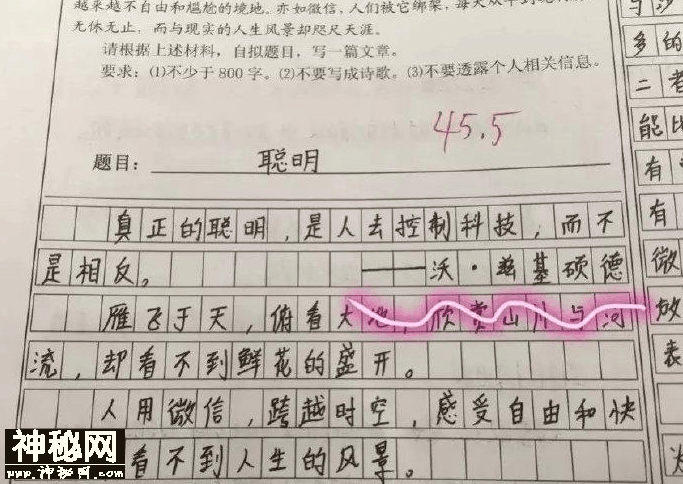 越来越不自由和尴尬的境地。亦如微信,人们被它绑架,每天
无休无止,而与现实的人生风景却咫尺天涯。
请根据上述材料,自拟题目,写一篇文章。
要求:(1)不少于800字。(2)不要写成诗歌。(3)不要透露个人相关信息。
45.5
题目: 聪明
真正的聪明,是人去控制科技,而不
是相反。 ——沃·兹基硕德
雁飞于天,俯看大地,欣赏山川与河
流,却看不到鲜花的盛开。
人用微信,跨越时空,感受自由和快
看不到人生的风景。
与沙
多的
二者
能比
有
有
微
放
表
神秘网
www.神秘网.com